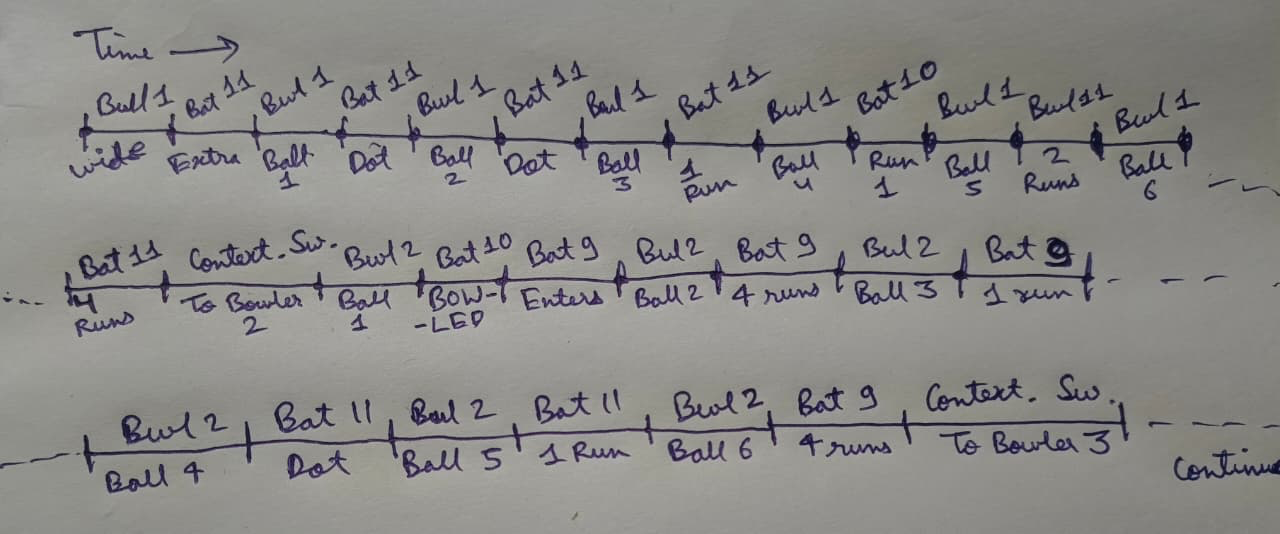 Time →
Bowl 1 Bat 11 Bowl 1 Bat 11 Bowl 1 Bat 11 Bowl 1 Bat 11 Bowl 1 Bat 10 Bowl 1 Bowl 11 Bowl 1
wide Extra Ball 1 Dot Ball 2 Dot Ball 3 1 Run Ball 4 Run 1 Ball 5 2 Runs Ball 6
Bat 11 Context. Sw. Bowl 2 Bat 10 Bat 9 Bowl 2 Bat 9 Bowl 2 Bat 9
4 Runs To Bowler 2 Ball 1 BOW-LED Enters Ball 2 4 runs Ball 3 1 run
Bowl 2 Bat 11 Bowl 2 Bat 11 Bowl 2 Bat 9 Context. Sw.
Ball 4 Dot Ball 5 1 Run Ball 6 4 runs To Bowler 3
Continue